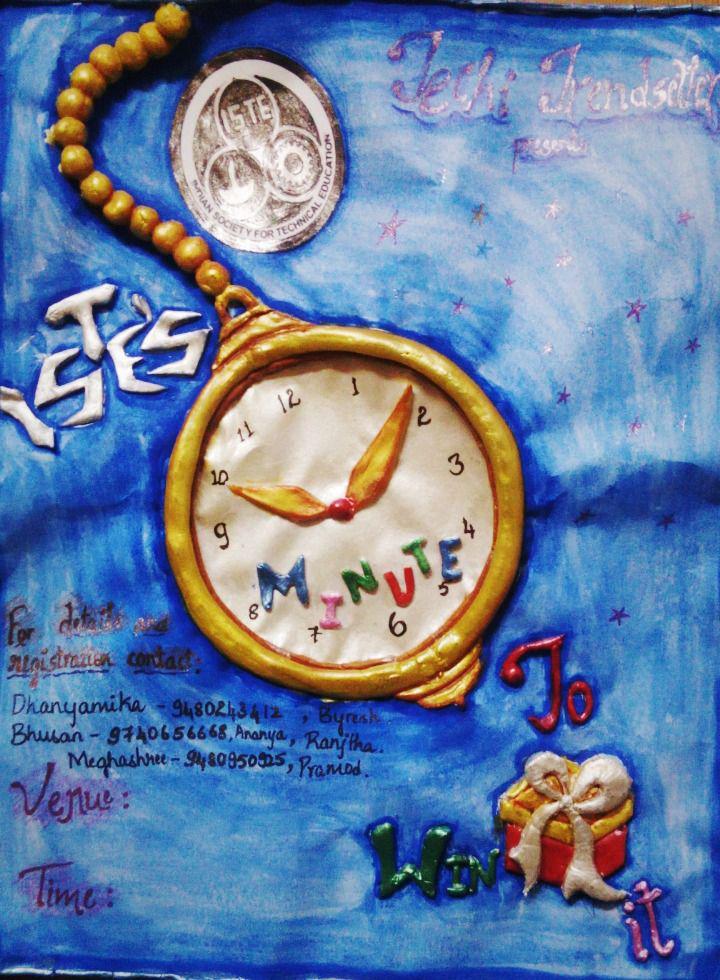 Techi Trendsetters
presents
ISTE
INDIAN SOCIETY FOR TECHNICAL EDUCATION
ISTE'S
12 1 2 3 4 5 6 7 8 9 10 11
MINUTE
To
WIN
it
For details and
registration contact:
Dhanyamika - 9480243412 , Byresh
Bhusan - 9740656668, Ananya, Ranjitha.
Meghashree - 9480950925, Pramod.
Venue:
Time: